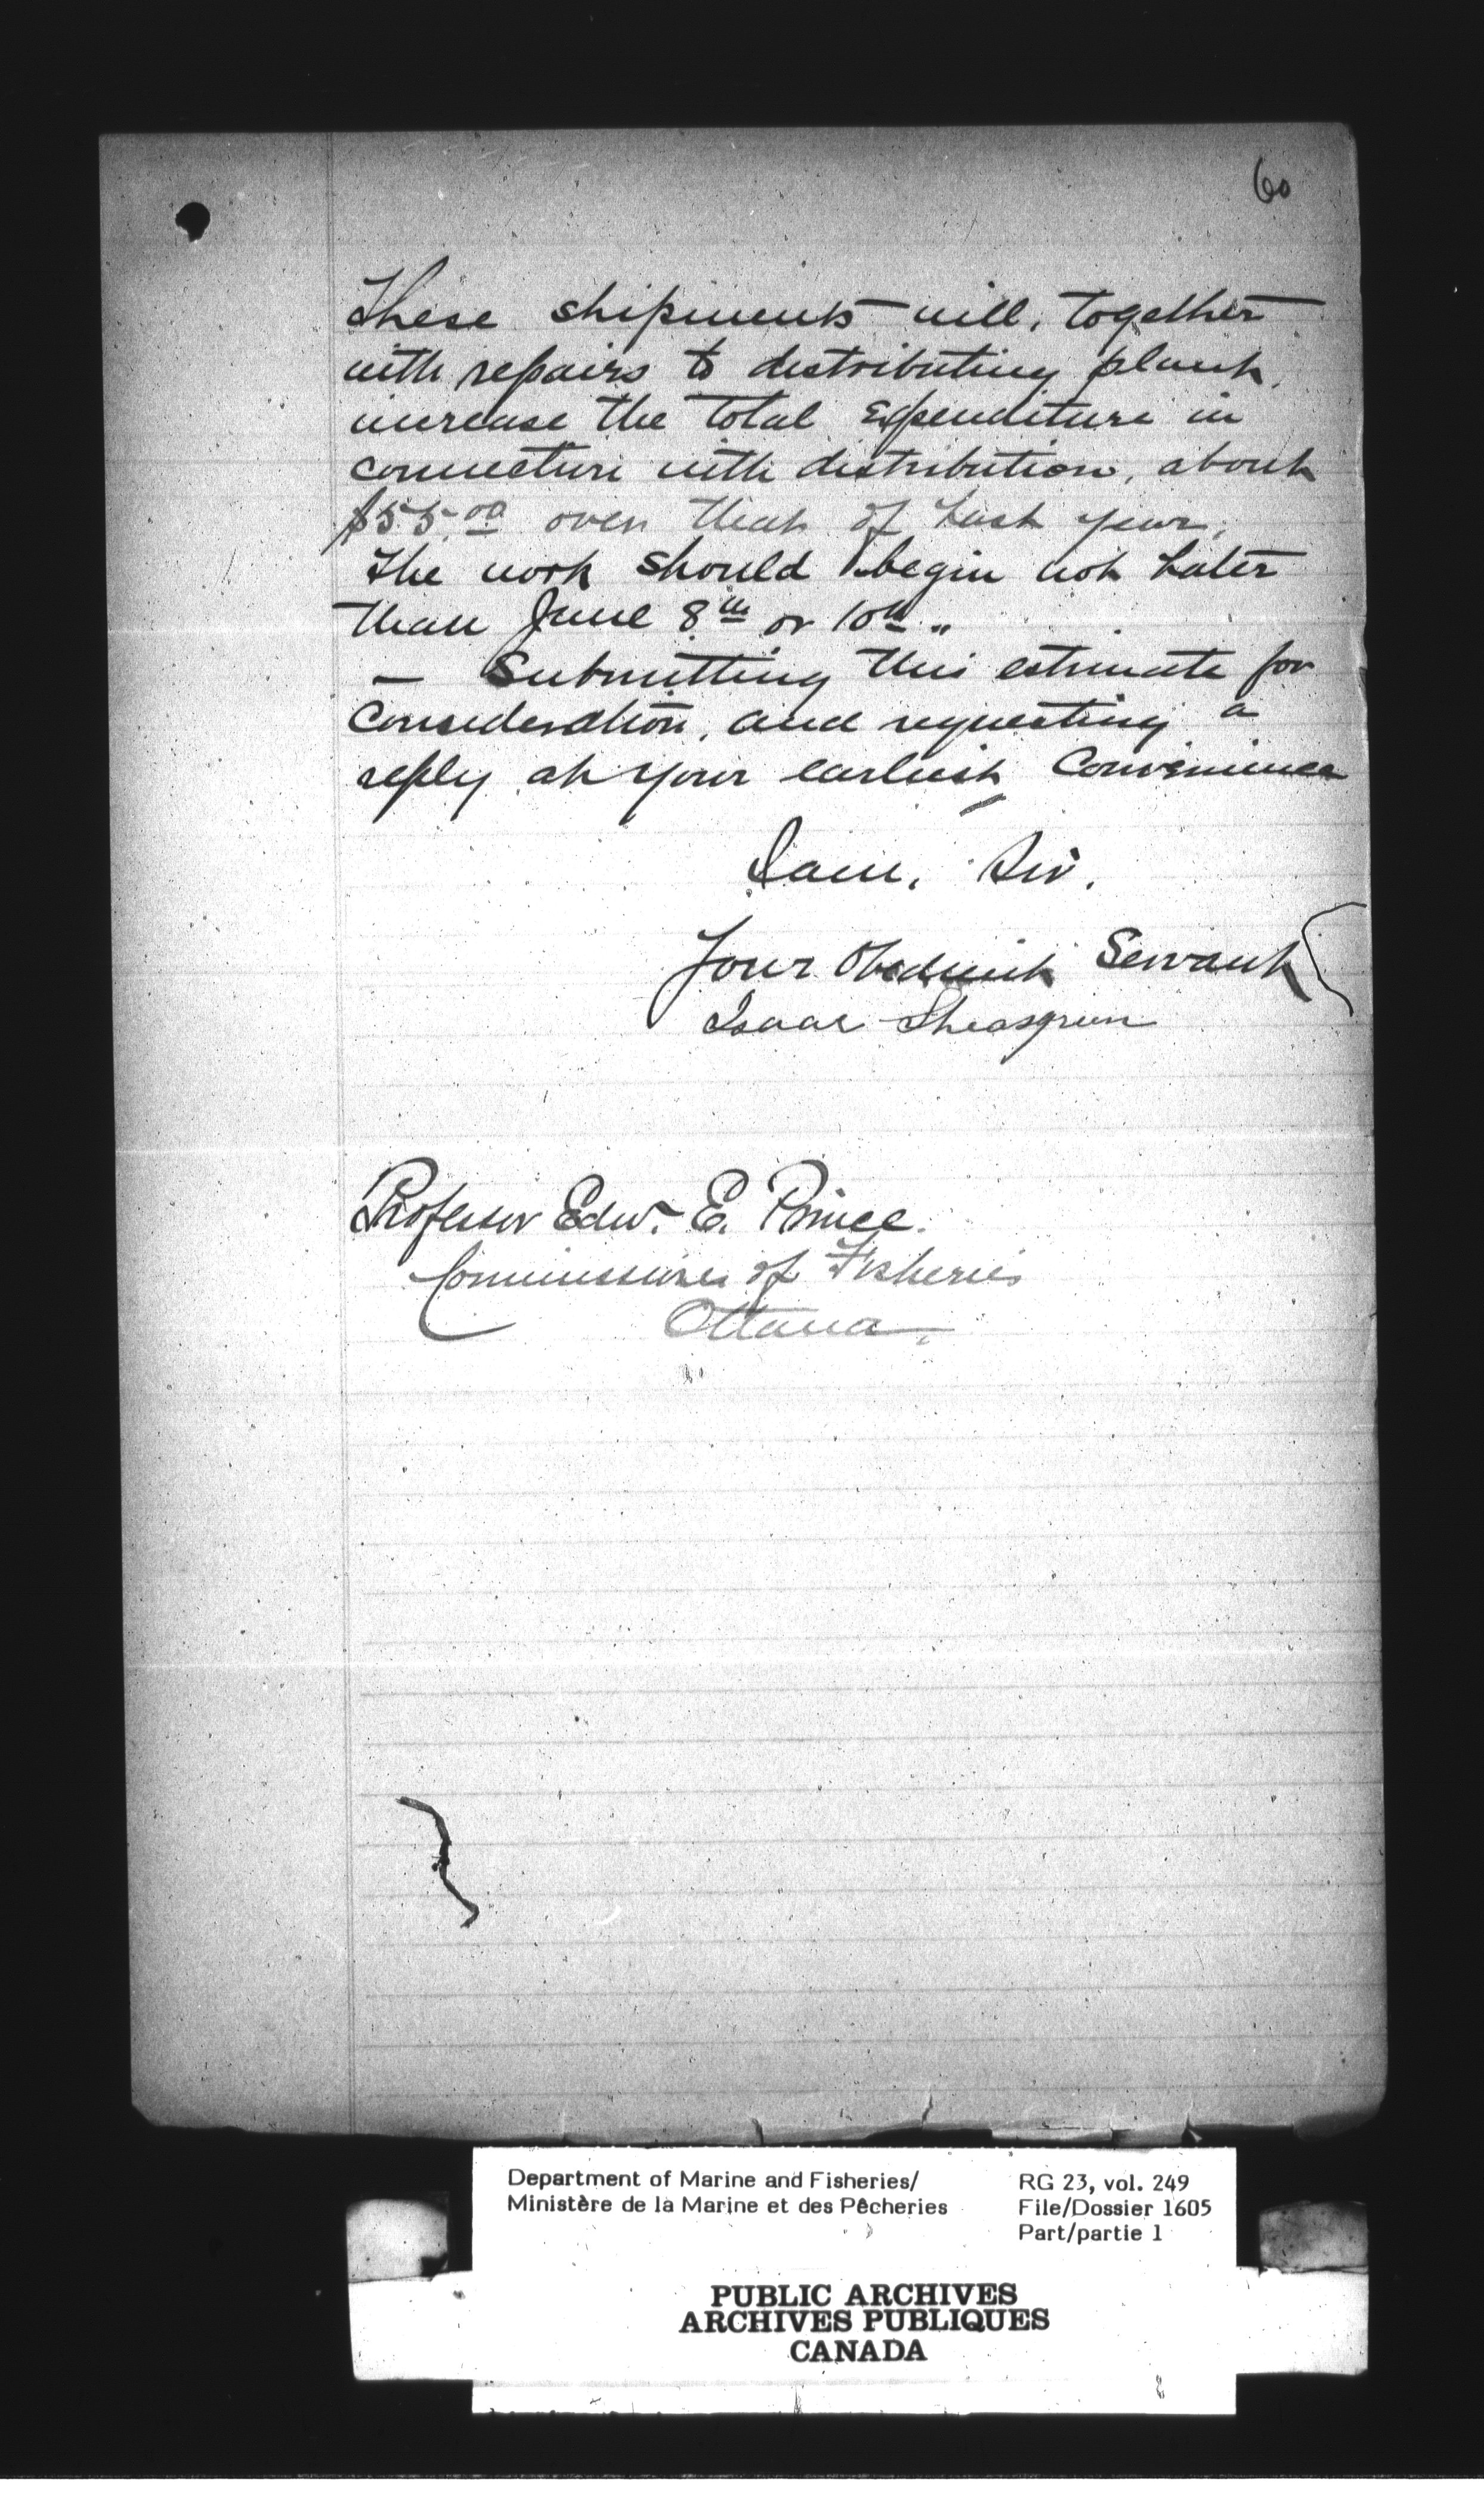 60
These shipments will, together
with repairs to distributing plant,
increase the total expenditure in
connection with distribution, about
$55.00 over that of last year.
The work should begin not later
than June 8th or 10th.
— Submitting this estimate for
consideration, and requesting a
reply at your earliest convenience
I am, Sir,
Your Obedient Servant
Isaac
Professor Edw. E. Prince.
Commissioner of Fisheries
Ottawa.
Department of Marine and Fisheries/
Ministère de la Marine et des Pêcheries
RG 23, vol. 249
File/Dossier 1605
Part/partie 1
PUBLIC ARCHIVES
ARCHIVES PUBLIQUES
CANADA